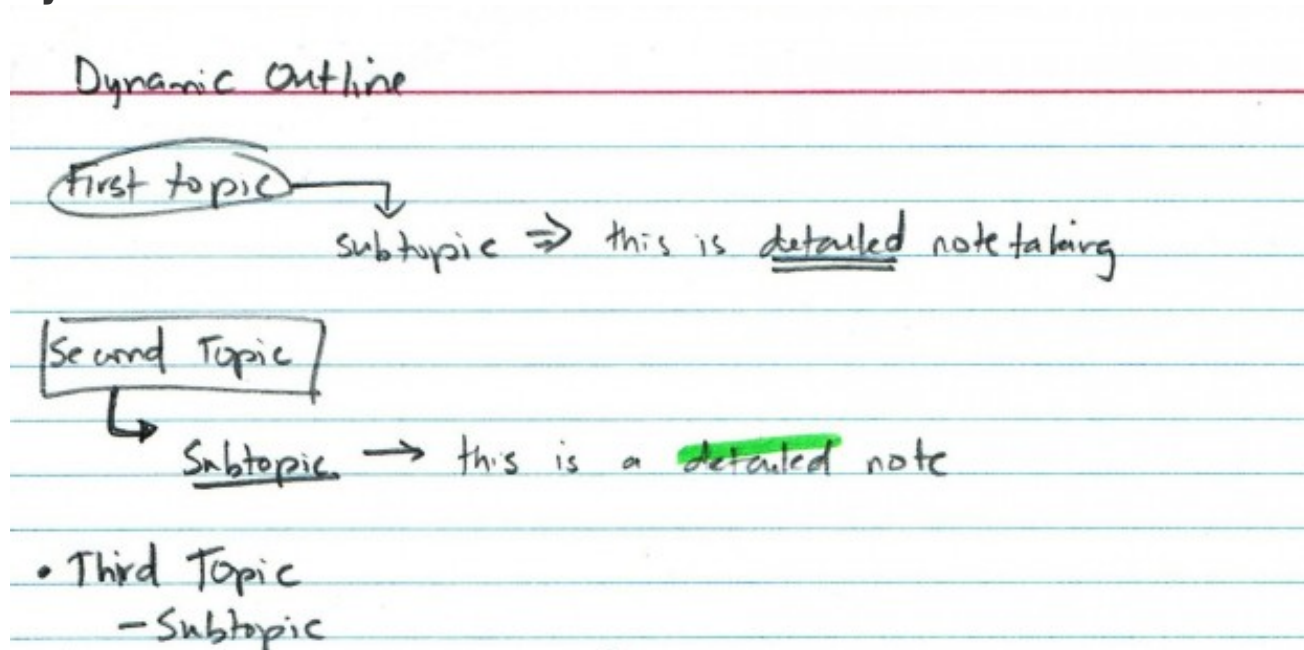 Dynamic Outline
First topic
subtopic ⇒ this is detailed note taking
Second Topic
Subtopic → this is a detailed note
• Third Topic
- Subtopic